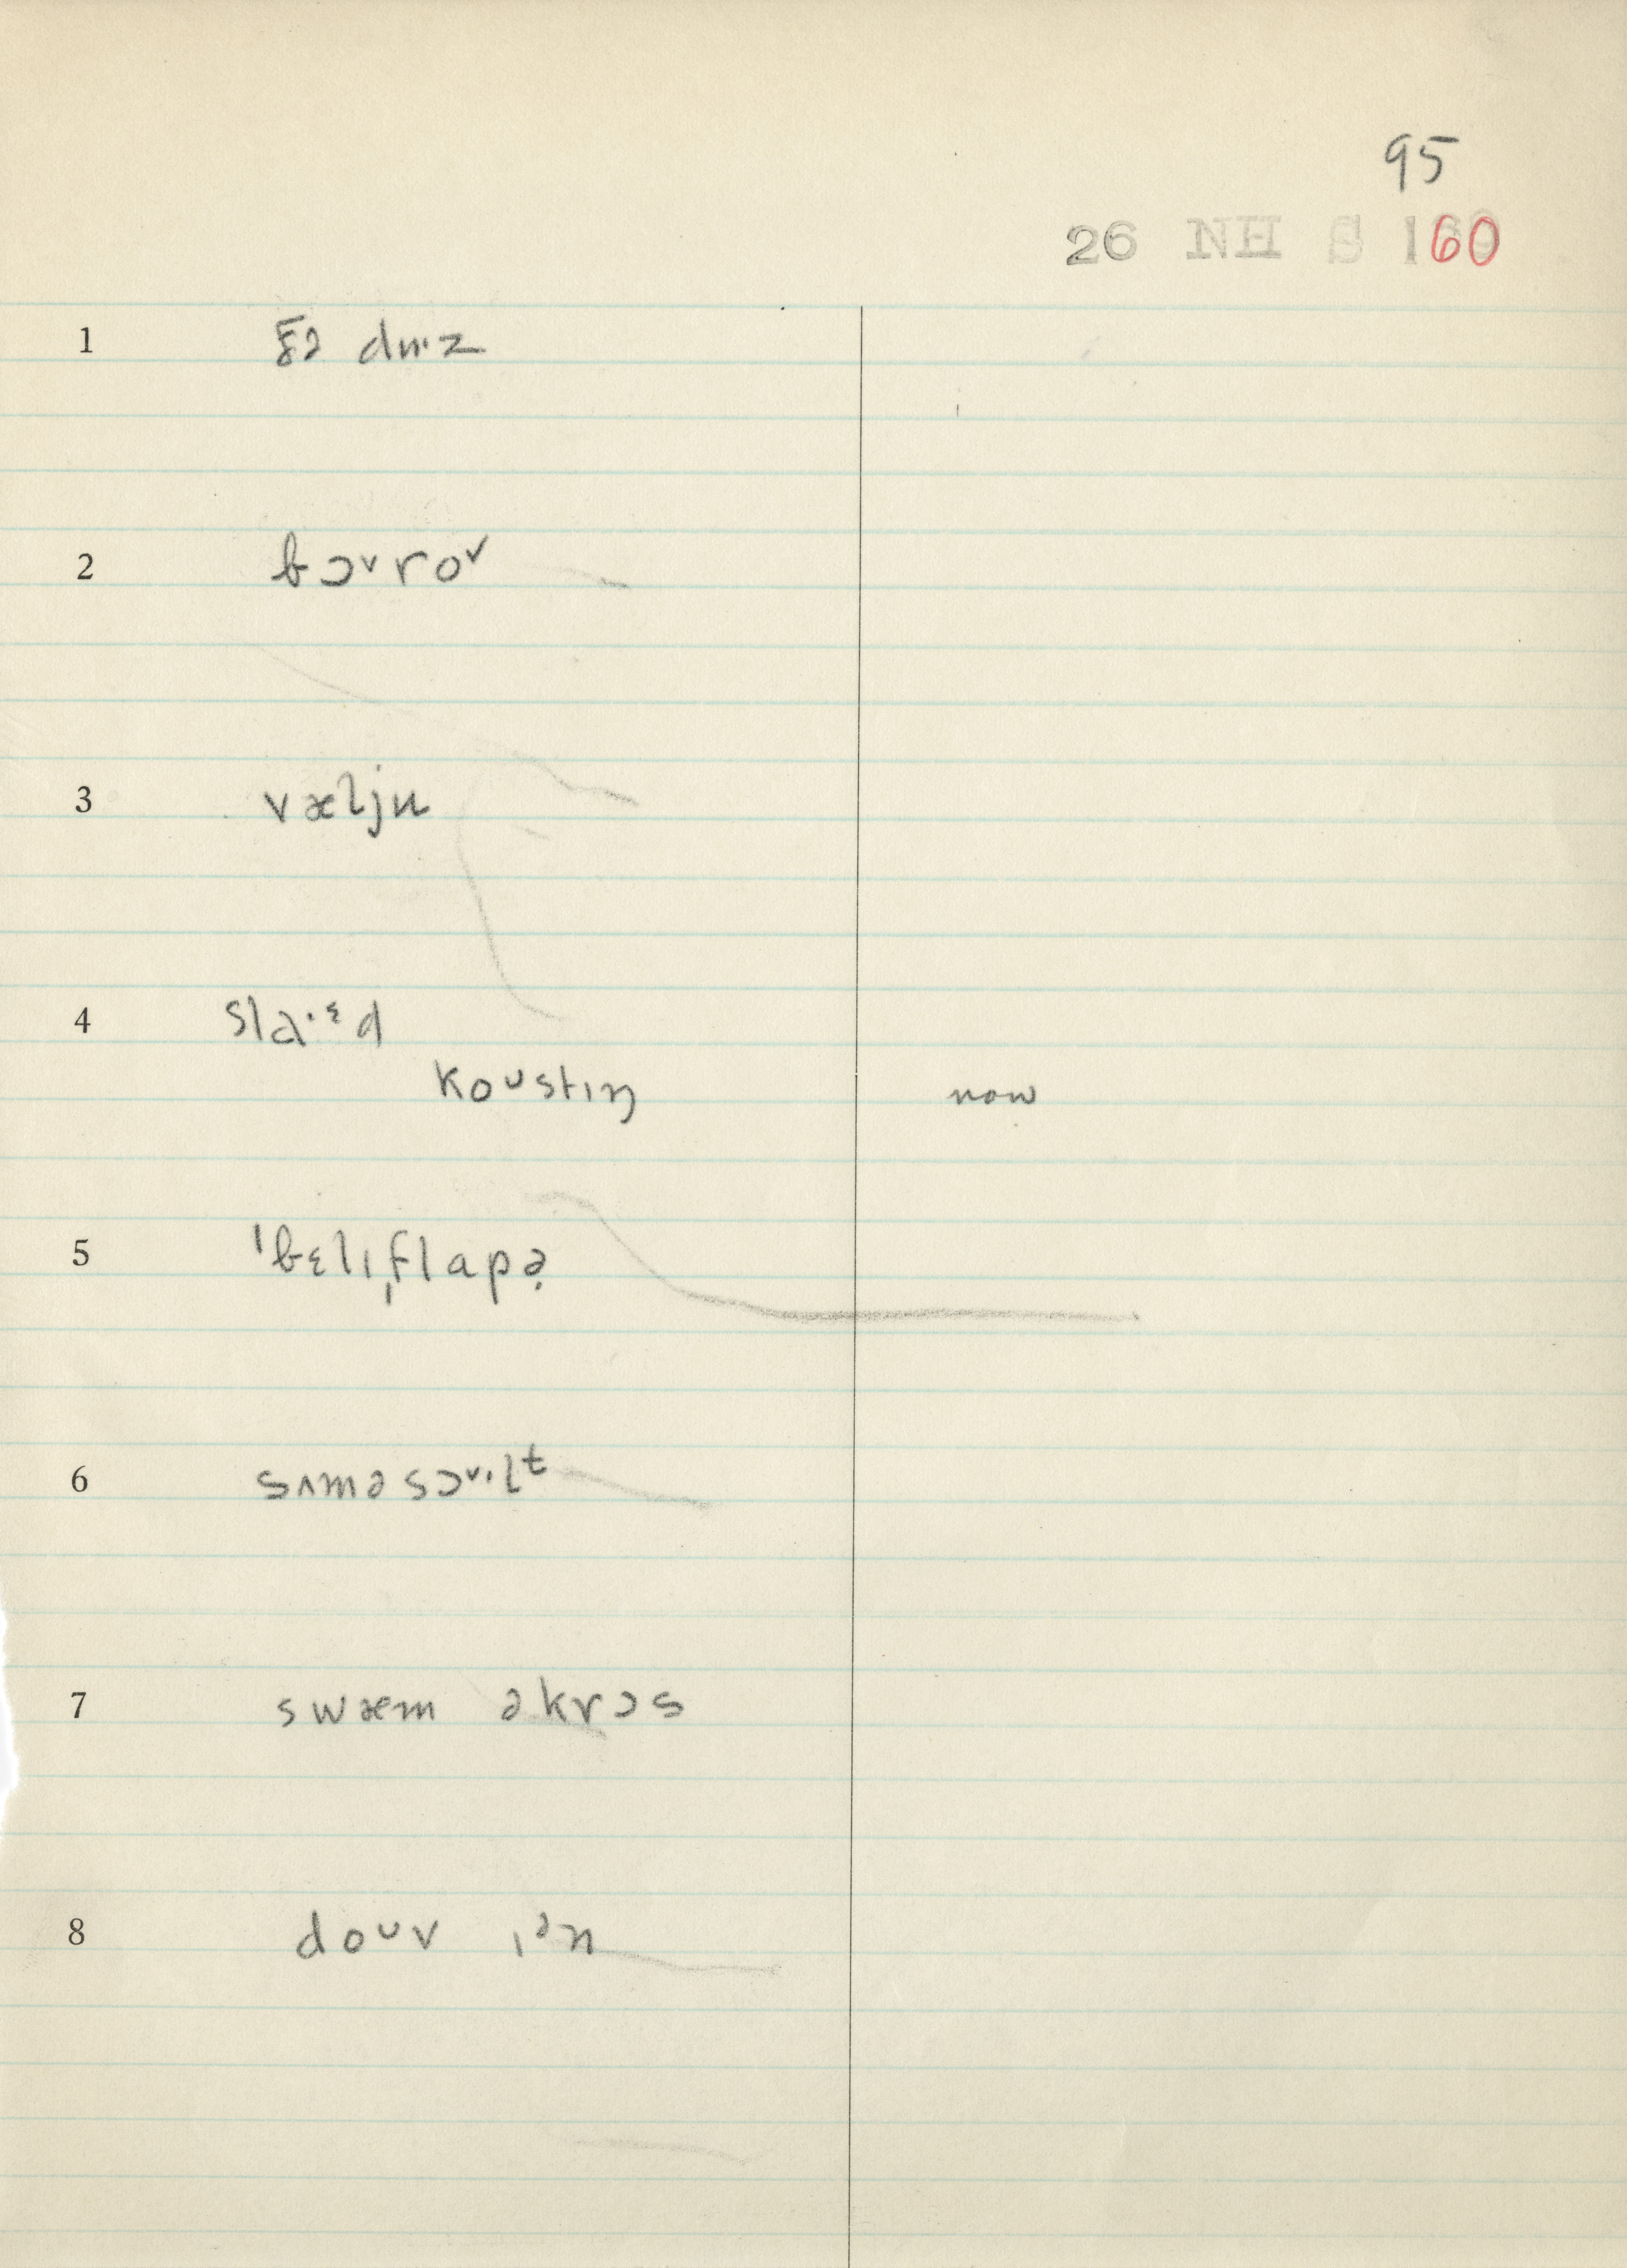 95
26 NH S 160
1 ðə dɯ·z
2 bɔᵛroᵛ
3 væljɯ
4 sla·ᵋd
koᴜstɪŋ now
5 ˈbɛlɪˌflapə̣
6 sʌməsɔᵛ·lᵗ
7 swæm əkrɔs
8 doᴜv ɪᵊn